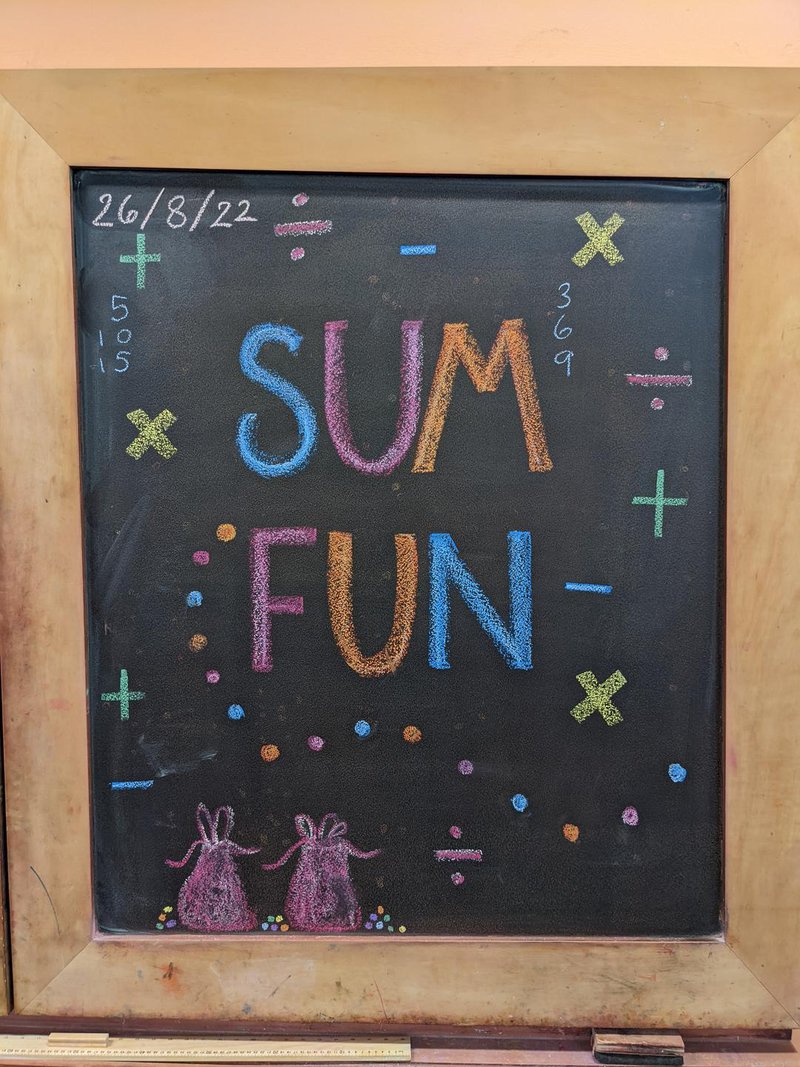 26/8/22
÷ - ×
+
5
10
15
3
6
9
SUM
÷
×
+
FUN
-
+
×
-
÷